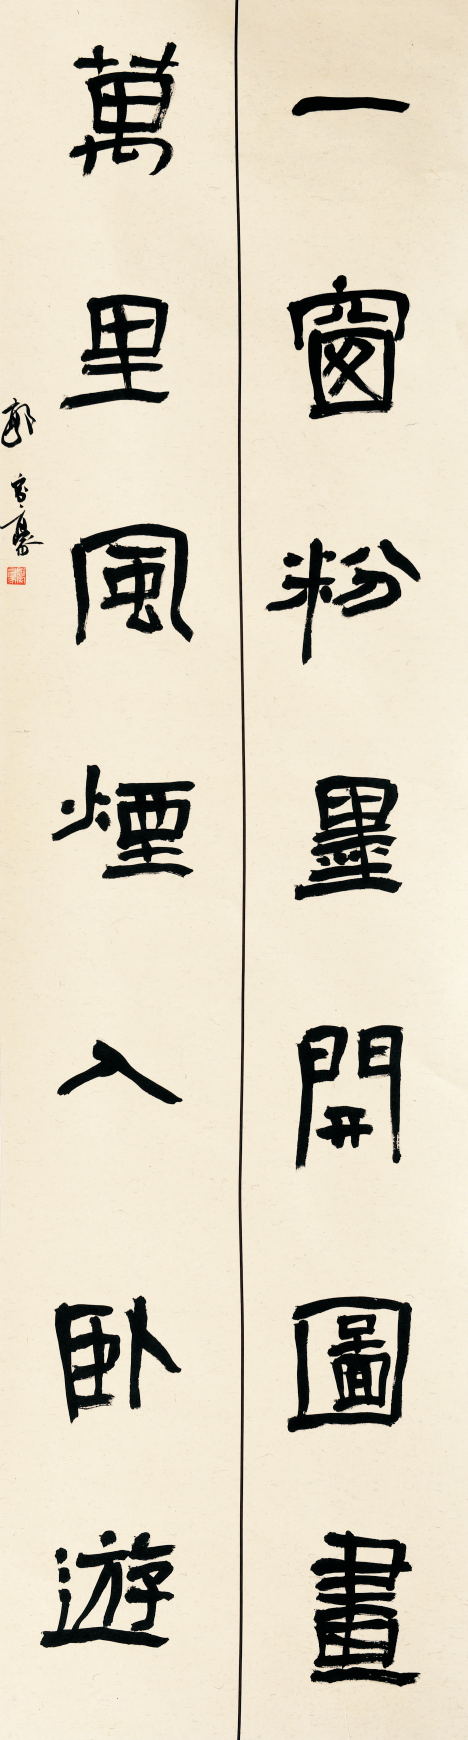 一窗粉墨開圖畫
萬里風煙入卧遊